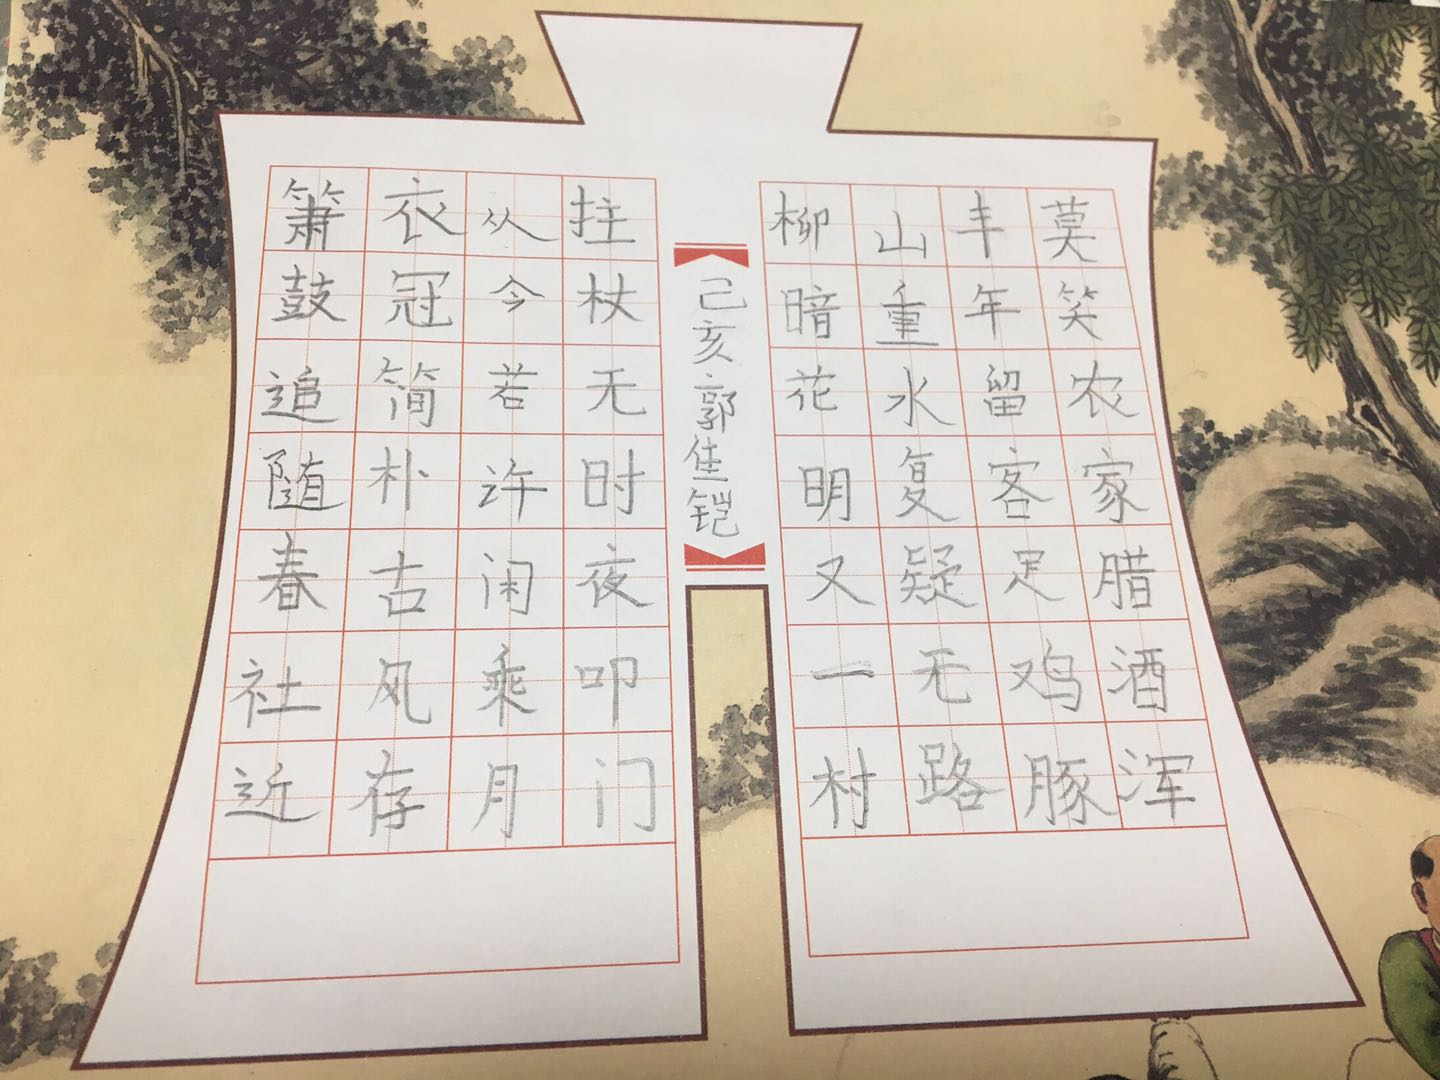 莫笑农家腊酒浑
丰年留客足鸡豚
山重水复疑无路
柳暗花明又一村
己亥郭佳铠
拄杖无时夜叩门
从今若许闲乘月
衣冠简朴古风存
箫鼓追随春社近